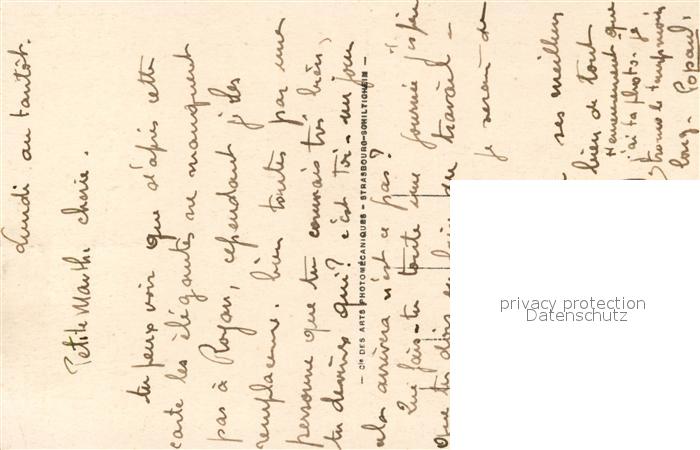 Lundi au tantôt.
Petite Marthe chérie.
tu peux voir que d'après cette
carte les élégantes ne manquent
pas à Royan, cependant j' les
remplacerai bien toutes par une
personne que tu connais très bien,
tu devines qui? c'est toi - un jour
cela arrivera n'est ce pas?
— Cie DES ARTS PHOTOMÉCANIQUES - STRASBOURG-SCHILTIGHEIM —
Que fais-tu toute une journée
Que tu dois en travail -
je serai de
ses meilleurs
bien de tout
Heureusement que
j'ai ta photo. je
trouve le temps moins
long. Popaul.
privacy protection
Datenschutz